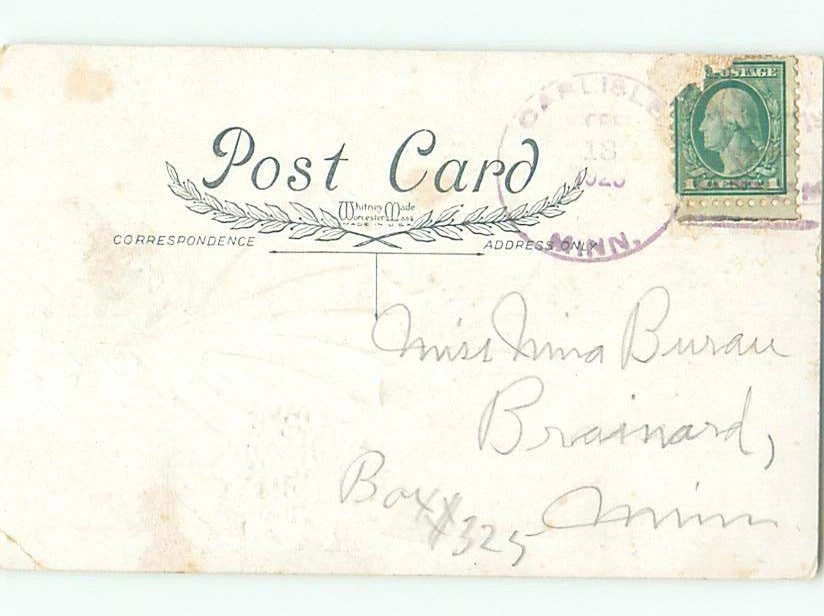 POSTAGE
1 CENTS 1
CARLISLE
13
MINN.
Post Card
Whitney Made
Worcester Mass
MADE IN U.S.A.
CORRESPONDENCE
ADDRESS ONLY
Miss Nina Burau
Brainard,
Box #325 Minn